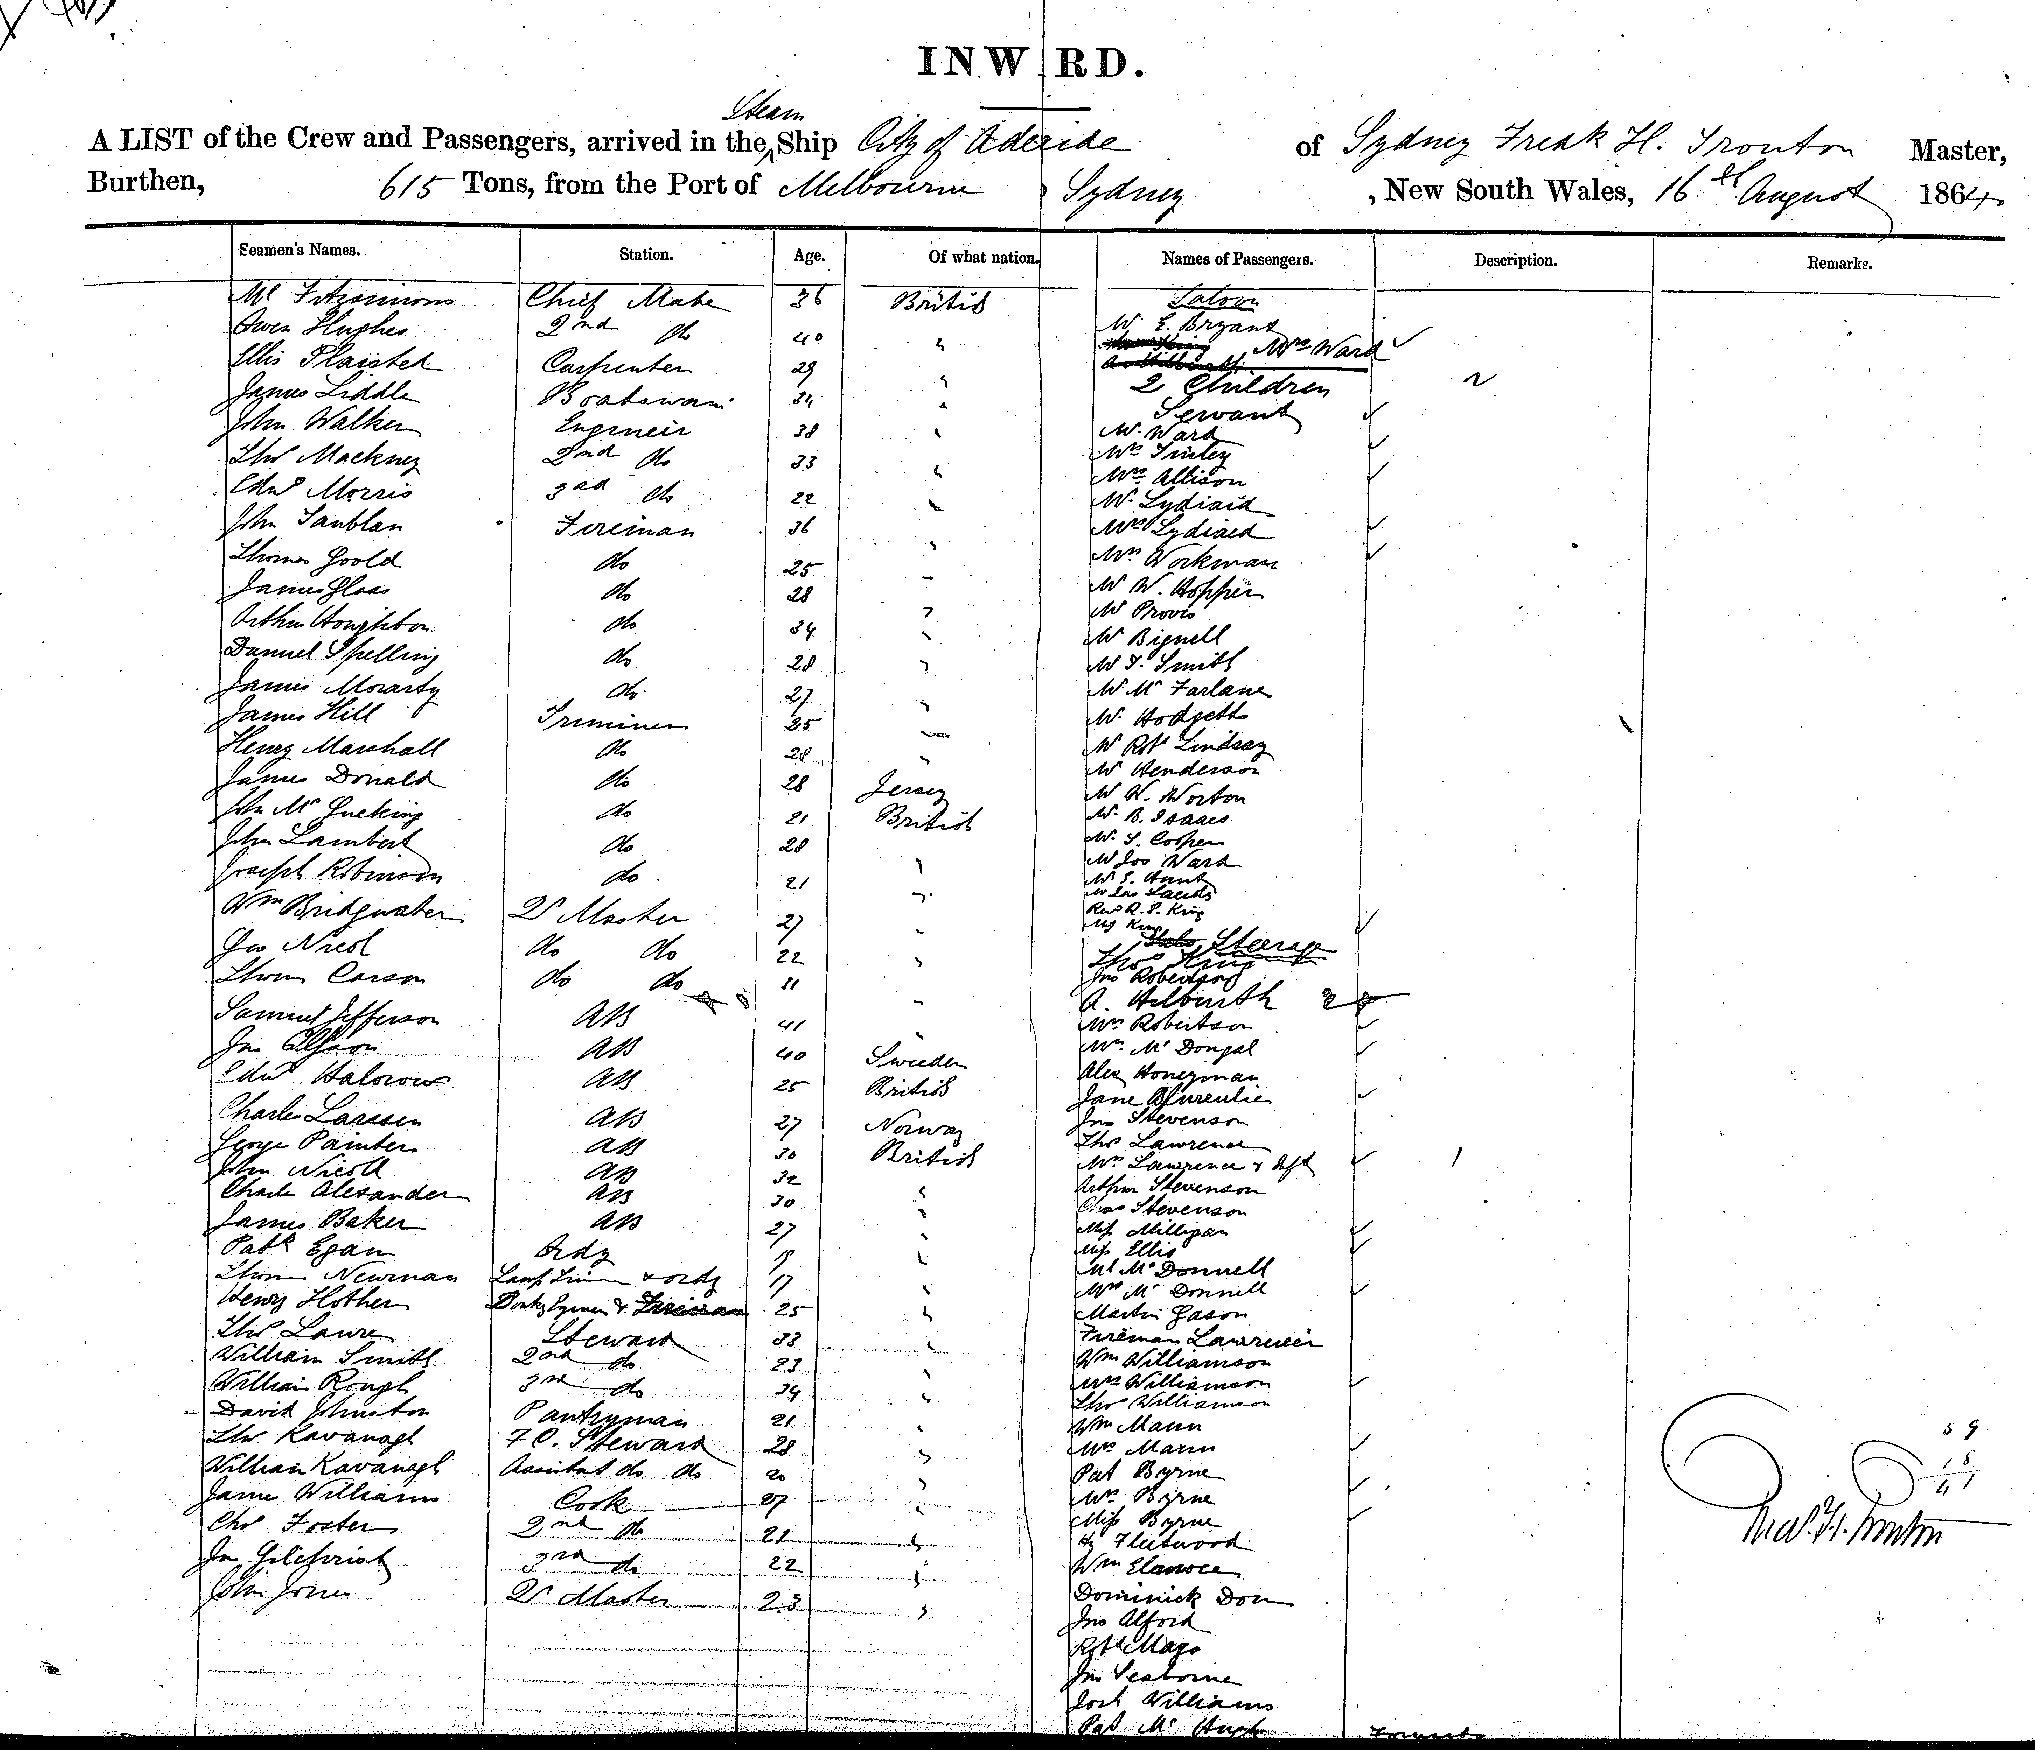 INW RD.
Steam
A LIST of the Crew and Passengers, arrived in the Ship City of Adelaide of Sydney Fredk H. Trouton Master,
Burthen, 615 Tons, from the Port of Melbourne Sydney , New South Wales, 16th August 1864.
Seamen's Names. Station. Age. Of what nation. Names of Passengers. Description. Remarks.
Fitzsimons Chief Mate 36 British Saloon
Owen Hughes 2nd do 40 " W. E. Bryant
Ellis Plaisted Carpenter 29 " Mrs Ward
James Liddle Boatswain 34 " 2 Children 2
Servant
John Walker Engineer 38 " Mr. Ward
Thos Mackney 2nd do 33 " Mrs Tinley
Mrs Allison
Edwd Morris 3rd do 22 " Mr. Lydiard
John Tanblan Fireman 36 " Mrs Lydiard
Thomas Goold do 25 " Mrs Workman
James Glass do 28 " Mr W. Hopper
Arthur Houghton do 34 " Mr Provis
Mr Bignell
Daniel Spelling do 28 " Mr T. Smith
James Morarty do 27 " Mr Mc Farlane
James Hill Trimmer 25 " Mr. Hodgetts
Henry Marshall do 28 " Mr Robt Lindsay
James Donald do 28 Jersey Mr Henderson
Mr W. Norton
John Mc do 21 British Mr. B. Isaacs
John Lambert do 28 " Mr. S. Cooper
Mr Jos Ward
Joseph Robinson do 21 " Mr S. Hunt
Mr Jas
Wm Bridgwater Qr Master 27 " Revd R. P. King
Mrs King
Jas Nicol do do 22 " Steerage
Thos King
Thom Carson do do 21 " Jno Robertson
A. Hilburth
Samuel Jefferson AB 41 " Mrs Robertson
Jno AB 40 Sweden Mrs Mc Dougal
Edwd Halcrow AB 25 British Alex Honeyman
Jane
Charles Larssen AB 27 Norway Jno Stevenson
George Painter AB 30 British Thos Lawrence
John Nicoll AB 32 Mrs Lawrence & Inft 1
Charles Alexander AB 30 " Arthur Stevenson
Chas Stevenson
James Baker AB 27 " Miss Milligan
Patk Egan Ordy 19 " Miss Ellis
Thom Newman Lamp Trim & ordy 17 " Mr Mc Donnell
Mrs Mc Donnell
Henry Hother Donky Eginen & Fireman 25 " Martin Gason
Thos Laure Steward 33 " Freeman Lawrence
William Smith 2nd do 23 " Wm Williamson
William Rough 3rd do 34 " Mrs Williamson
David Johnston Pantryman 21 " Thos Williamson
Wm Mann
Thos Kavanagh F C. Steward 28 " Mrs Mann
William Kavanagh Assistant do do 20 " Pat Byrne
James Williams Cook 27 " Mrs Byrne
Miss Byrne
Chs Foster 2nd do 21 " Hy Fleetwood
Jn Gilchrist 3rd do 22 " Wm
John Jones Qr Master 23 " Dominick Don
Jno Alford
Robt Mays
Jno Seaborne
Josh Williams
Pat Mc Hugh
59
Fred. H. Trouton